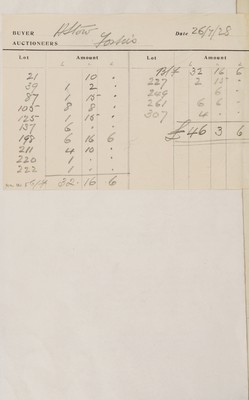 BUYER H Stow Date 26/7/28
AUCTIONEERS Foster's
Lot Amount Lot Amount
£ £
21 10 "
39 1 2 "
87 1 15 "
105 8 8 "
125 1 15 "
137 6 " "
198 6 16 6
211 4 10 "
220 1 " "
222 1 " "
C/f 32 16 6
B/f 32 16 6
227 2 15 "
249 6 "
261 6 6 "
307 4 " "
£46 3 6